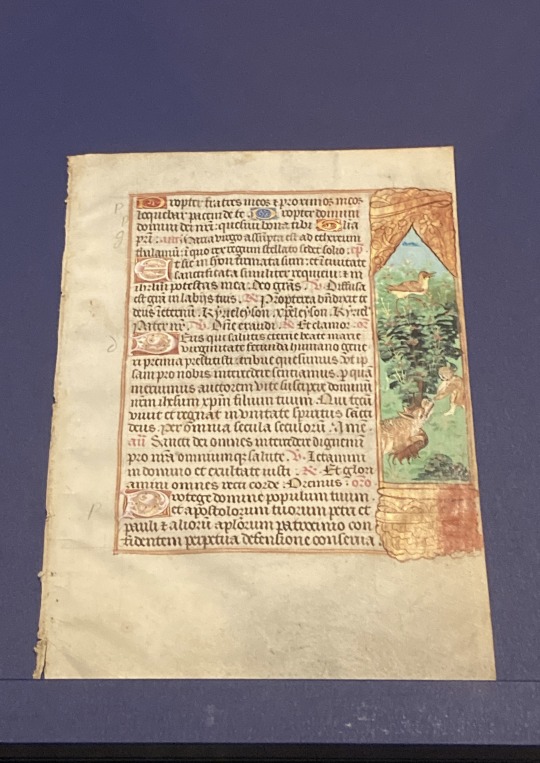 Propter fratres meos & proximos meos
loquebar pacem de te Propter domum
domini dei nri: quesivi bona tibi Glia
pri. an Maria virgo assũpta est ad ethereum
thalamũ: i quo rex regum stellato sedet solio. cp
Et sic in syon firmata sum: et i civitate
sanctificata similiter requievi: & in
ihrlm potestas mea. Deo gras. V. Diffusa
est gra in labijs tuis. R. Propterea bñdixit te
deus i eternũ. Kyrieleyson xpeleyson Kyriel
Pater nr. V. Dñe exaudi. R. Et clamor. or
Deus qui salutis eterne beate marie
virginitate fecunda humano gene
ri premia prestitisti: tribue quesumus: ut ip
sam pro nobis intercedere sentiamus. p quã
meruimus auctorem vite suscipere dominũ
nrm ihesum xpm filium tuum. Qui tecũ
vivit et regnat in unitate spiritus sãcti
deus. per omnia secula seculorũ. Ame.
an Sancti dei omnes intercedere dignemĩ
pro nrã omniumq salute. V. Letamini
in domino et exultate iusti. R. Et glori
amini omnes recti corde. Oremus. oro
Protege domine populum tuum:
et apostolorum tuorum petri et
pauli & aliorũ aplorum patrocinio con
fidentem perpetua defensione conserva